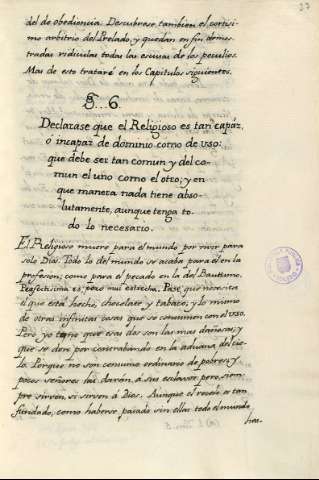 27
del de obediencia. Descubrese tambien el cortisi-
mo arbitrio del Prelado, y quedan en fin demos-
tradas ridiculas todas las escusas de los peculios.
Mas de este trataré en los Capitulos siguientes.
§...6.
Declarase que el Religioso es tan capáz,
o incapaz de dominio como de uso:
que debe ser tan comun y del co-
mun el uno como el otro; y en
que manera nada tiene abso-
lutamente, aunque tenga to-
do lo necesario.
El Religioso muere para el mundo por vivir para
solo Dios. Todo lo del mundo se acaba para el en la
profesion; como para el pecado en la del Bautismo.
Perfectissima es, pero mui estrecha. Pase que necesita
el que está hecho, chocolate y tabaco, y lo mismo
de otras infinitas cosas que se consumen con el uso.
Pero yo que esas dos son las mas dañosas; y
que se den por contrabando en la aduana del cie-
lo. Porque no son consumo ordinario de pobres; y
pocos señores las darán á sus esclavos, pero siem-
pre sirven, si sirven á Dios. Aunque el
como haberse pasado sin ellas todo el mundo
has-